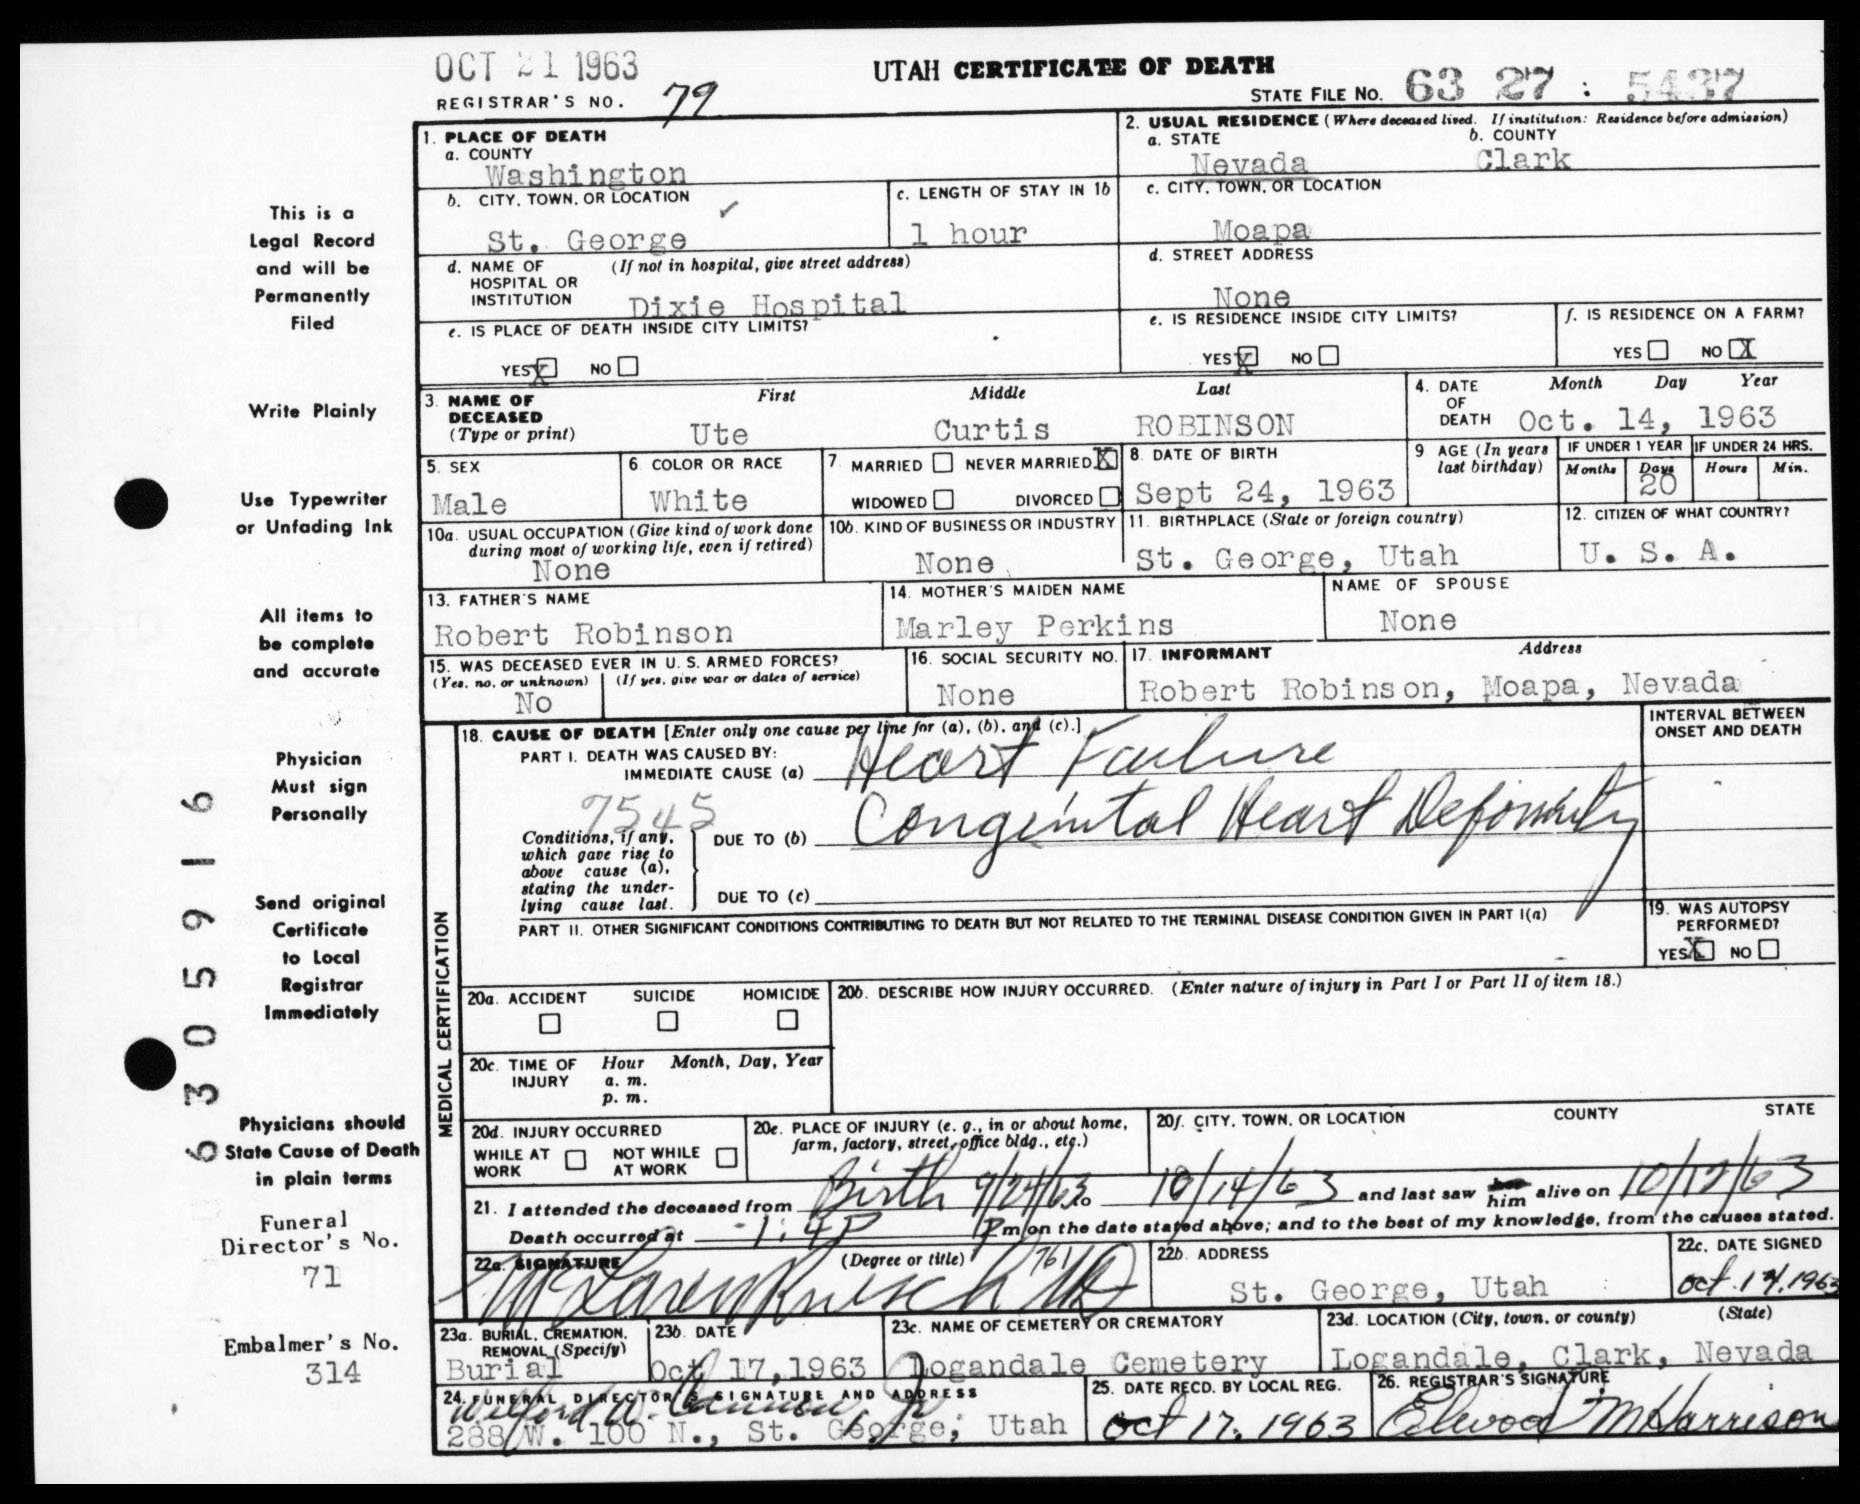 OCT 21 1963
UTAH CERTIFICATE OF DEATH
REGISTRAR'S NO. 79
STATE FILE NO. 63 27 : 5437
This is a
Legal Record
and will be
Permanently
Filed
Write Plainly
Use Typewriter
or Unfading Ink
All items to
be complete
and accurate
Physician
Must sign
Personally
Send original
Certificate
to Local
Registrar
Immediately
Physicians should
State Cause of Death
in plain terms
Funeral
Director's No.
71
Embalmer's No.
314
6305916
1. PLACE OF DEATH
a. COUNTY
Washington
b. CITY, TOWN, OR LOCATION ✓
St. George
c. LENGTH OF STAY IN 1b
1 hour
d. NAME OF HOSPITAL OR INSTITUTION (If not in hospital, give street address)
Dixie Hospital
e. IS PLACE OF DEATH INSIDE CITY LIMITS?
YES X NO
2. USUAL RESIDENCE (Where deceased lived. If institution: Residence before admission)
a. STATE b. COUNTY
Nevada Clark
c. CITY, TOWN, OR LOCATION
Moapa
d. STREET ADDRESS
None
e. IS RESIDENCE INSIDE CITY LIMITS?
YES X NO
f. IS RESIDENCE ON A FARM?
YES NO X
3. NAME OF DECEASED (Type or print)
First Middle Last
Ute Curtis ROBINSON
4. DATE OF DEATH Month Day Year
Oct. 14, 1963
5. SEX
Male
6. COLOR OR RACE
White
7. MARRIED NEVER MARRIED X
WIDOWED DIVORCED
8. DATE OF BIRTH
Sept 24, 1963
9 AGE (In years last birthday)
IF UNDER 1 YEAR IF UNDER 24 HRS.
Months Days Hours Min.
20
10a. USUAL OCCUPATION (Give kind of work done during most of working life, even if retired)
None
10b. KIND OF BUSINESS OR INDUSTRY
None
11. BIRTHPLACE (State or foreign country)
St. George, Utah
12. CITIZEN OF WHAT COUNTRY?
U. S. A.
13. FATHER'S NAME
Robert Robinson
14. MOTHER'S MAIDEN NAME
Marley Perkins
NAME OF SPOUSE
None
15. WAS DECEASED EVER IN U. S. ARMED FORCES?
(Yes, no, or unknown) (If yes, give war or dates of service)
No
16. SOCIAL SECURITY NO.
None
17. INFORMANT Address
Robert Robinson, Moapa, Nevada
MEDICAL CERTIFICATION
18. CAUSE OF DEATH [Enter only one cause per line for (a), (b), and (c).]
PART I. DEATH WAS CAUSED BY:
IMMEDIATE CAUSE (a) Heart Failure
7545
Conditions, if any, which gave rise to above cause (a), stating the underlying cause last.
DUE TO (b) Congenital Heart Deformity
DUE TO (c)
INTERVAL BETWEEN ONSET AND DEATH
PART II. OTHER SIGNIFICANT CONDITIONS CONTRIBUTING TO DEATH BUT NOT RELATED TO THE TERMINAL DISEASE CONDITION GIVEN IN PART I(a)
19. WAS AUTOPSY PERFORMED?
YES X NO
20a. ACCIDENT SUICIDE HOMICIDE
20b. DESCRIBE HOW INJURY OCCURRED. (Enter nature of injury in Part I or Part II of item 18.)
20c. TIME OF INJURY Hour Month, Day, Year
a. m.
p. m.
20d. INJURY OCCURRED
WHILE AT WORK NOT WHILE AT WORK
20e. PLACE OF INJURY (e. g., in or about home, farm, factory, street, office bldg., etc.)
20f. CITY, TOWN, OR LOCATION COUNTY STATE
21. I attended the deceased from Birth 9/24/63 to 10/14/63 and last saw him alive on 10/12/63
Death occurred at 1:4 P m on the date stated above; and to the best of my knowledge, from the causes stated.
22a. SIGNATURE (Degree or title)
22b. ADDRESS
St. George, Utah
22c. DATE SIGNED
Oct. 14, 1963
23a. BURIAL, CREMATION, REMOVAL (Specify)
Burial
23b. DATE
Oct 17, 1963
23c. NAME OF CEMETERY OR CREMATORY
Logandale Cemetery
23d. LOCATION (City, town, or county) (State)
Logandale, Clark, Nevada
24. FUNERAL DIRECTOR'S SIGNATURE AND ADDRESS
288 W. 100 N., St. George, Utah
25. DATE RECD. BY LOCAL REG.
Oct 17, 1963
26. REGISTRAR'S SIGNATURE
Elwood M Harrison